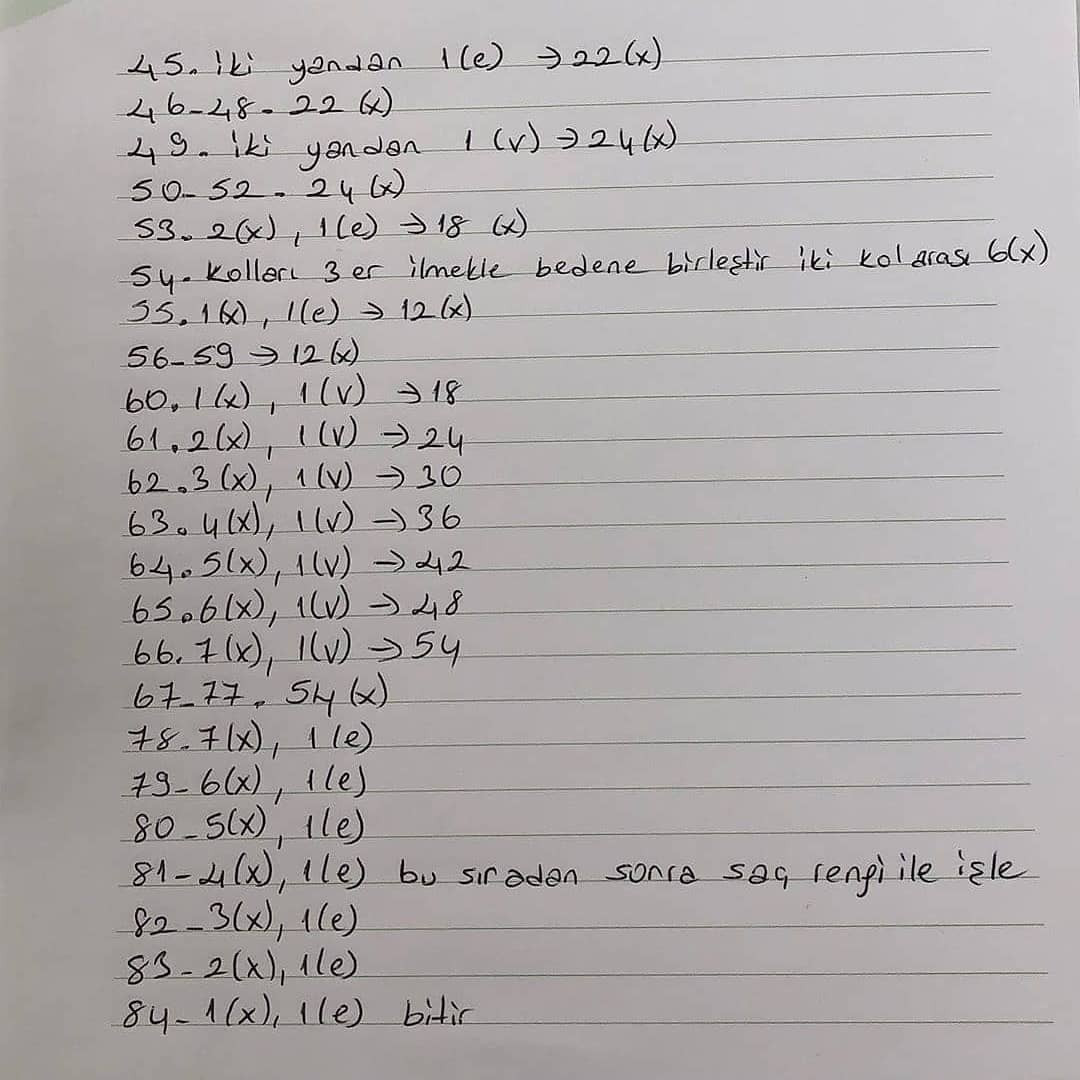 45. İki yandan 1(e) → 22(x)
46-48. 22 (x)
49. iki yandan 1 (v) → 24(x)
50-52. 24 (x)
53. 2(x), 1(e) → 18 (x)
54. Kolları 3 er ilmekle bedene birleştir iki kol arası 6(x)
55. 1(x), 1(e) → 12(x)
56-59 → 12(x)
60. 1(x), 1(v) → 18
61. 2(x), 1(v) → 24
62. 3(x), 1(v) → 30
63. 4(x), 1(v) → 36
64. 5(x), 1(v) → 42
65. 6(x), 1(v) → 48
66. 7(x), 1(v) → 54
67-77. 54(x)
78. 7(x), 1(e)
79- 6(x), 1(e)
80-5(x), 1(e)
81-4(x), 1(e) bu sıradan sonra saç rengi ile işle
82-3(x), 1(e)
83-2(x), 1(e)
84-1(x), 1(e) bitir